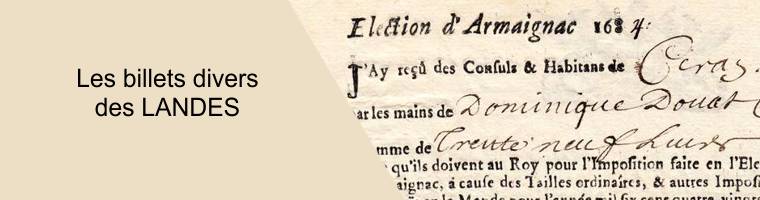 Les billets divers
des LANDES
Election d'Armaignac 1684:
J'Ay reçû des Consuls & Habitans de
ar les mains de Dominique Douat
mme de Trente neuf Livres
qu'ils doivent au Roy pour l'Imposition faite en l'Ele
aignac, à cause des Tailles ordinaires, & autres Imposi
pour l'année mil six cens quatre vingt